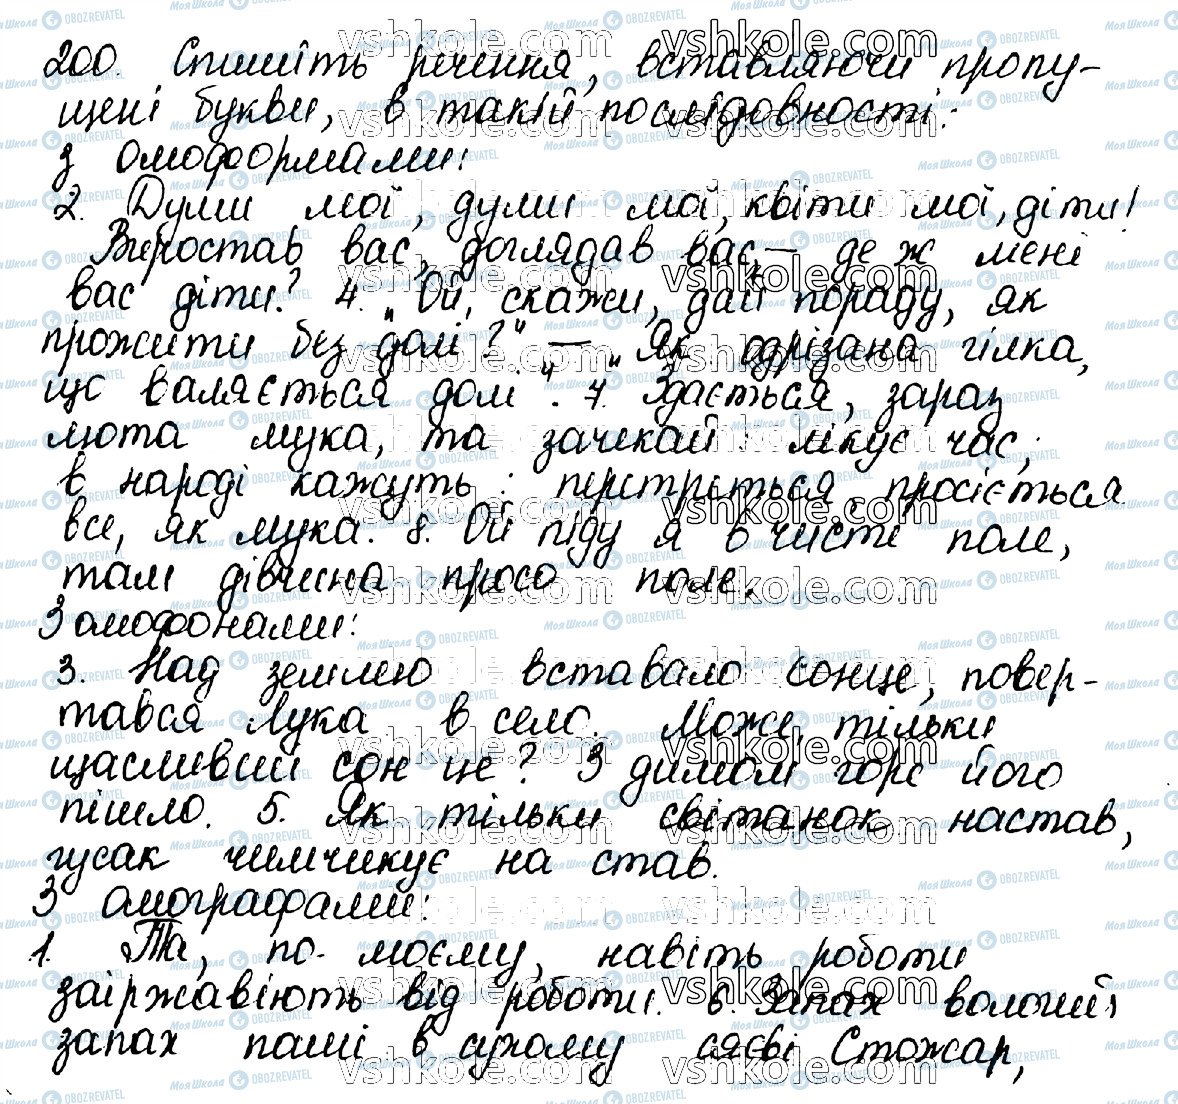 200. Спишіть речення, вставляючи пропу-
щені букви, в такій послідовності:
З омоформами:
2. Думи мої, думи мої, квіти мої, діти!
Виростав вас, доглядав вас, — де ж мені
вас діти? 4. „Ой, скажи, дай пораду, як
прожити без долі?" — „Як одрізана гілка,
що валяється долі". 7. Здається, зараз
люта мука, та зачекай : лікує час,
в народі кажуть : перетреться, просіється
все, як мука. 8. Ой піду я в чисте поле,
там дівчина просо поле.
З омофонами:
3. Над землею вставало сонце, повер-
тався Лука в село. Може, тільки
щасливий сон це? З димом горе його
пішло. 5. Як тільки світанок настав,
гусак чимчикує на став.
З омографами:
1. Та, по-моєму, навіть роботи
заіржавіють від роботи. 6. Запах вологий
запах паші в сухому сяєві Стожар,